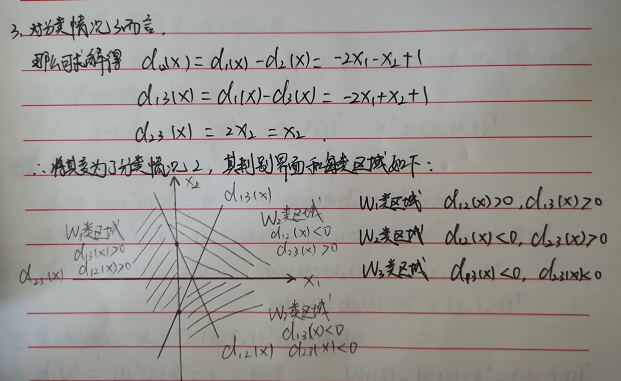 3.对分类情况3而言.
那么可求解得 d₁₂(x)=d₁(x)-d₂(x)=-2x₁-x₂+1
d₁₃(x)=d₁(x)-d₃(x)=-2x₁+x₂+1
d₂₃(x)=2x₂=x₂.
∴将其变为了分类情况2,其判别界面和每类区域如下:
x₂
d₁₃(x)
W₁类区域
d₁₃(x)>0
d₁₂(x)>0
W₂类区域
d₁₂(x)<0
d₂₃(x)>0
d₂₃(x)
x₁
W₃类区域
d₁₃(x)<0
d₂₃(x)<0
d₁₂(x)
W₁类区域 d₁₂(x)>0,d₁₃(x)>0
W₂类区域 d₁₂(x)<0,d₂₃(x)>0
W₃类区域 d₁₃(x)<0,d₂₃(x)<0